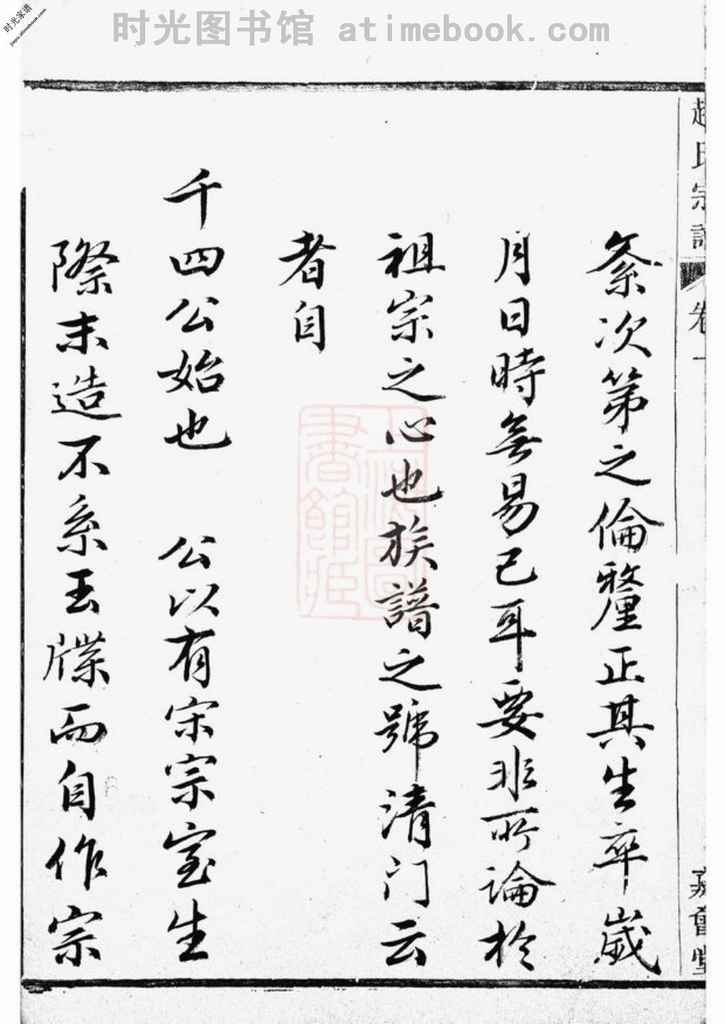 时光图书馆 atimebook.com
时光家谱
趙氏宗譜
卷一
嘉會堂
紊次第之倫釐正其生卒歲
月日時無易已耳要非所論於
祖宗之心也族譜之號清门云
者自
千四公始也 公以有宋宗室生
際末造不系玉牒而自作宗